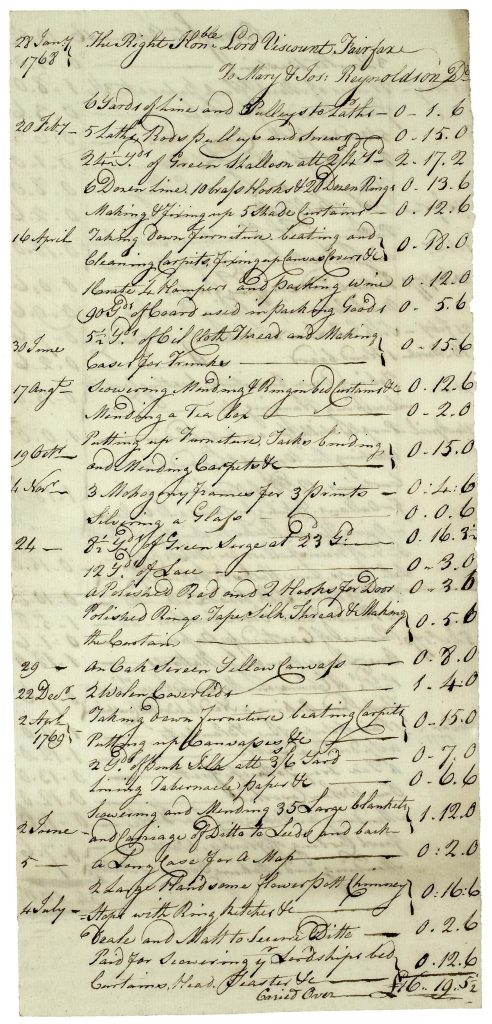 28 Jan.y The Right Hon.ble Lord Viscount Fairfax
1768 To Mary & Jos: Reynoldson D.r
6 Yards of Line and Pulleys to Laths - 0 - 1 . 6
20 Feb.y - 5 Laths Rods pulleys and screws - 0 - 15 . 0
24½ Y.ds of Green Shalloon att 2/4 Y.d 2 - 17 . 2
6 Dozen Line, 10 brass Hooks & 20 Dozen Rings 0 . 13 . 6
Making & fixing up 5 Shade Curtains - 0 . 12 . 6
16 April Taking down Furniture beating and
Cleaning Carpits, Fixing up Canvas Covers &c } 0 . 18 . 0
1 Crate 4 Hampers and Packing Wine 0 . 12 . 0
90 Y.ds of Coard used in packing Goods 0 . 5 . 6
5½ Y.ds of Oil Cloth Thread and Making
30 June Cases for Trunks } 0 - 15 . 6
17 Aug.t - Scowering Mending & Ringin bed Curtains &c 0 . 12 . 6
Mending a Tea Box 0 - 2 . 0
Putting up Furniture, Tacks binding
19 Oct.r - and Mending Carpets &c } 0 . 15 . 0
4 Nov.r - 3 Mohogony frames for 3 prints - 0 : 4 : 6
Silvering a Glass 0 . 0 . 6
24 - 8½ Y.ds of Green Serge at 23 Y.d 0 . 16 . 3½
12 Y.ds of Lace 0 - 3 . 0
a Polished Rod and 2 Hooks for Door 0 - 3 . 6
Polished Rings, Tape Silk, Thread & Making
the Curtain } 0 . 5 . 6
29 - an Oak Screen Yellow Canvass 0 . 8 . 0
22 Dec.r - 2 Wolen Coverlids 1 . 4 . 0
2 Apl. Taking down Furniture beating Carpets
1769 Putting up Canvases &c } 0 - 15 . 0
2 Y.ds of pink Silk att 3/6 Yard 0 - 7 . 0
lining Tabernacle, paper &c 0 - 6 . 6
Scowering and Mending 35 Large blankets
2 June - and Carriage of Ditto to Leeds and back } 1 . 12 . 0
5 - a Long Case for a Map 0 : 2 . 0
2 Large Handsome flower pott Chimney
4 July - Stops with Ring ketches &c } 0 : 16 : 6
Deale and Matt to Secure Ditto - 0 . 2 . 6
Paid for Scowering y.r Lordships bed
Curtains, Head, Teaster &c } 0 . 12 . 6
Caried Over £16 - 19 . 5½